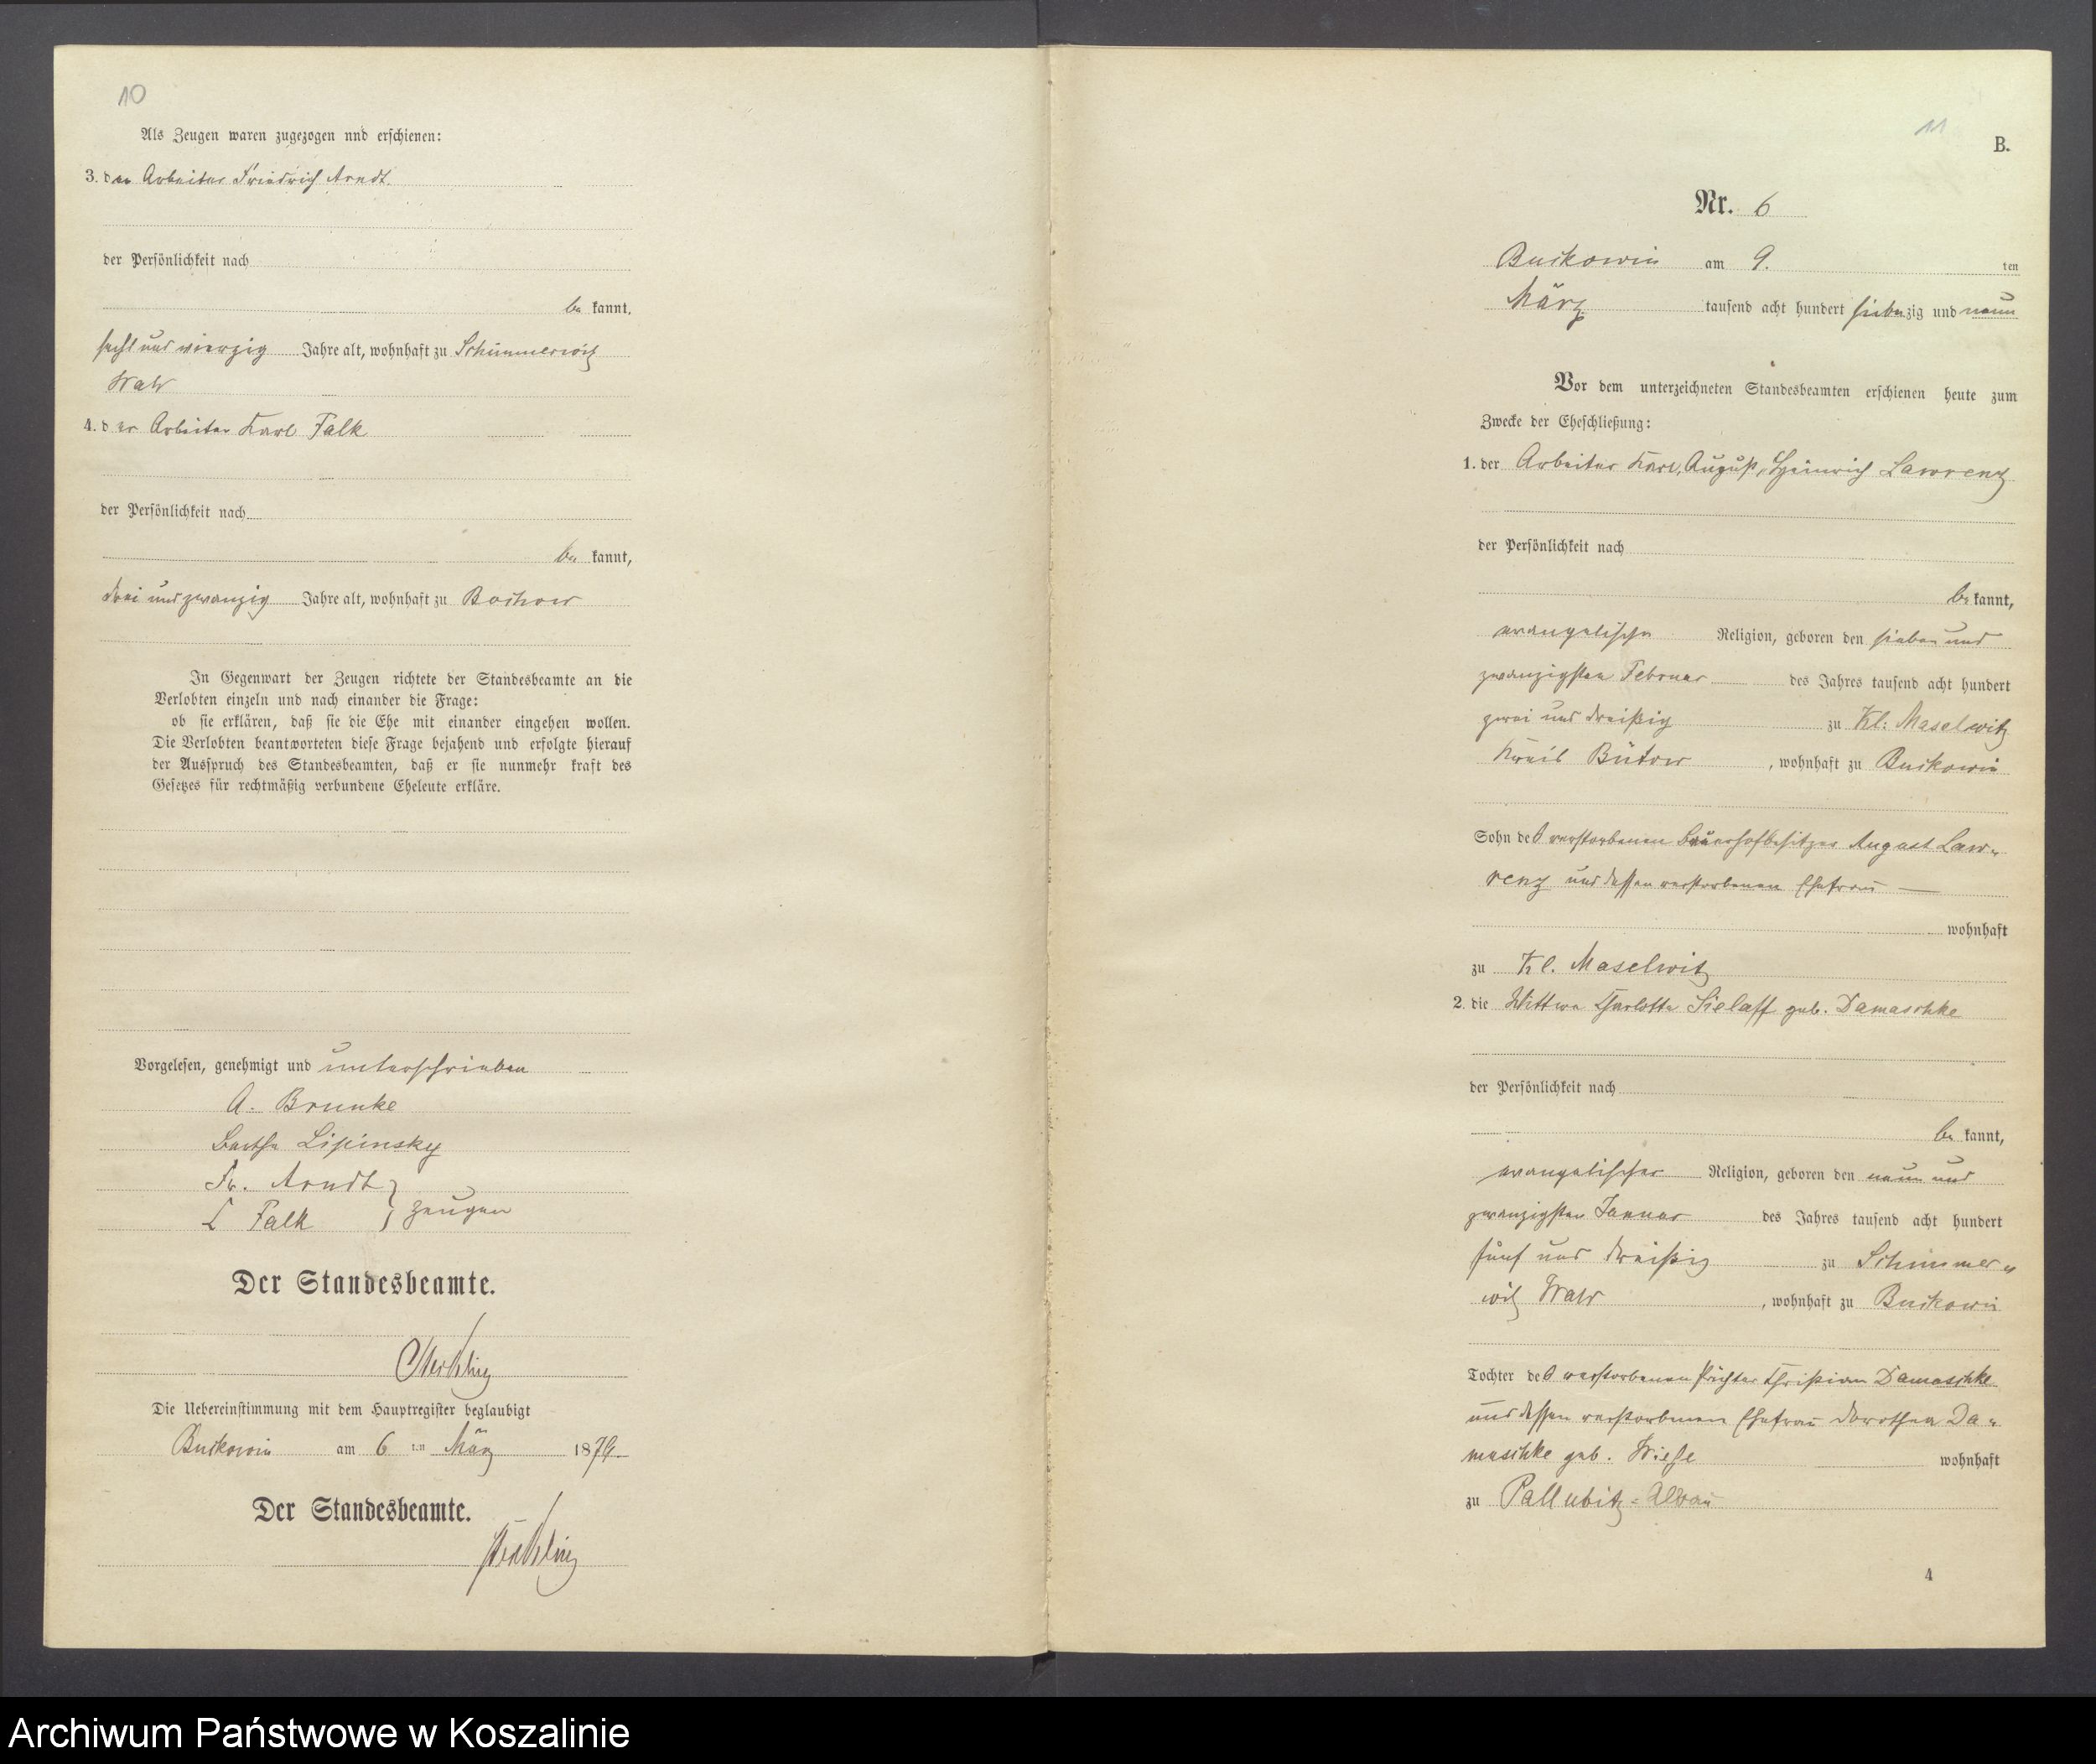 10
Als Zeugen waren zugezogen nnd erschienen:
3. der Arbeiter Friedrich Arndt
der Persönlichkeit nach
be kannt.
sechs und vierzig Jahre alt, wohnhaft zu Schimmerwitz
4. der Arbeiter Karl Falk
der Persönlichkeit nach
be kannt,
drei und zwanzig Jahre alt, wohnhaft zu Bochow
In Gegenwart der Zeugen richtete der Standesbeamte an die
Verlobten einzeln und nach einander die Frage:
ob sie erklären, daß sie die Ehe mit einander eingehen wollen.
Die Verlobten beantworteten diese Frage bejahend und erfolgte hierauf
der Ausspruch des Standesbeamten, daß er sie nunmehr kraft des
Gesetzes für rechtmäßig verbundene Eheleute erkläre.
Vorgelesen, genehmigt und unterschrieben
A. Brunke
Bertha Lipinsky
Fr. Arndt
Falk } Zeugen
Der Standesbeamte.
Die Uebereinstimmung mit dem Hauptregister beglaubigt
Buckowin am 6 ten März 1879
Der Standesbeamte.
11
B.
Nr. 6
Buckowin am 9. ten
März tausend acht hundert siebenzig und neun
Vor dem unterzeichneten Standesbeamten erschienen heute zum
Zwecke der Eheschließung:
1. der Arbeiter Karl, August, Heinrich Lawrenz
der Persönlichkeit nach
be kannt,
evangelischer Religion, geboren den sieben und
zwanzigsten Februar des Jahres tausend acht hundert
zwei und dreißig zu Kl. Maselwitz
Kreis Bütow, wohnhaft zu Buckowin
Sohn des verstorbenen Bauerhofbesitzer August Law-
renz und dessen verstorbenen Ehefrau —
wohnhaft
zu Kl. Maselwitz
2. die Wittwe Charlotte Sielaff geb. Damaschke
der Persönlichkeit nach
be kannt,
evangelischer Religion, geboren den neun und
zwanzigsten Januar des Jahres tausend acht hundert
fünf und dreißig zu Schimmer-
witz, wohnhaft zu Buckowin
Tochter des verstorbenen Pächter Christian Damaschke
und dessen verstorbenen Ehefrau Dorothea Da-
maschke geb. Wiese wohnhaft
zu Pallubitz
4
Archiwum Państwowe w Koszalinie